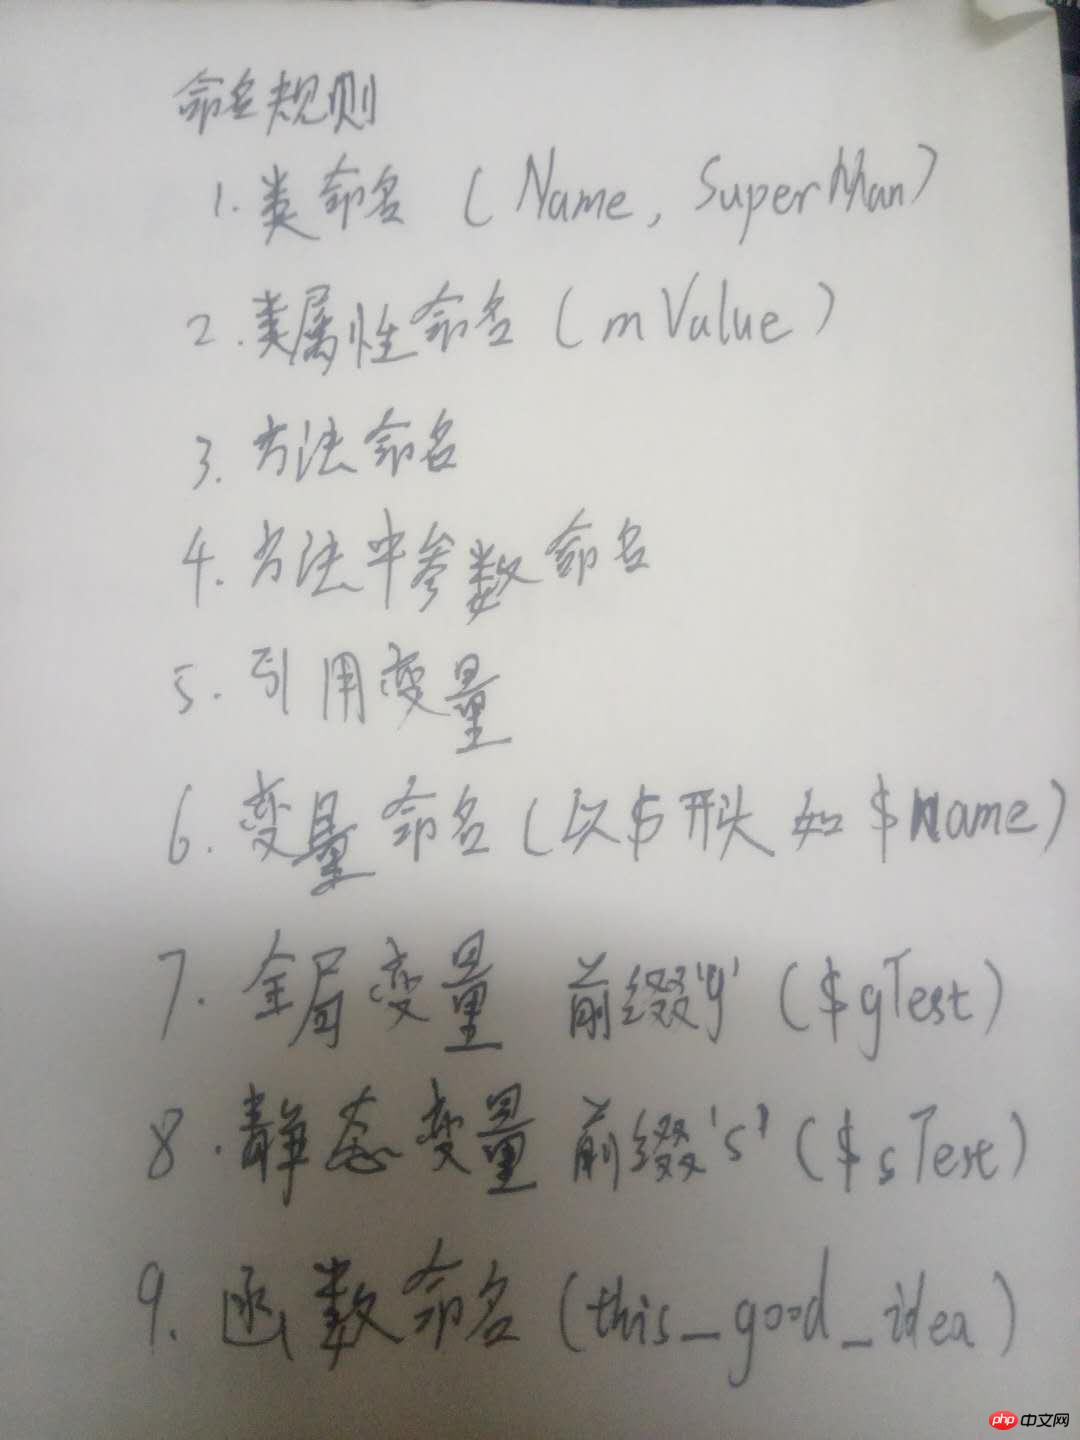 命名规则
1. 类命名 (Name, SuperMan)
2. 类属性命名 (mValue)
3. 方法命名
4. 方法中参数命名
5. 引用变量
6. 变量命名 (以$开头 如 $Name)
7. 全局变量 前缀'g' ($gTest)
8. 静态变量 前缀's' ($sTest)
9. 函数命名 (this_good_idea)
php 中文网